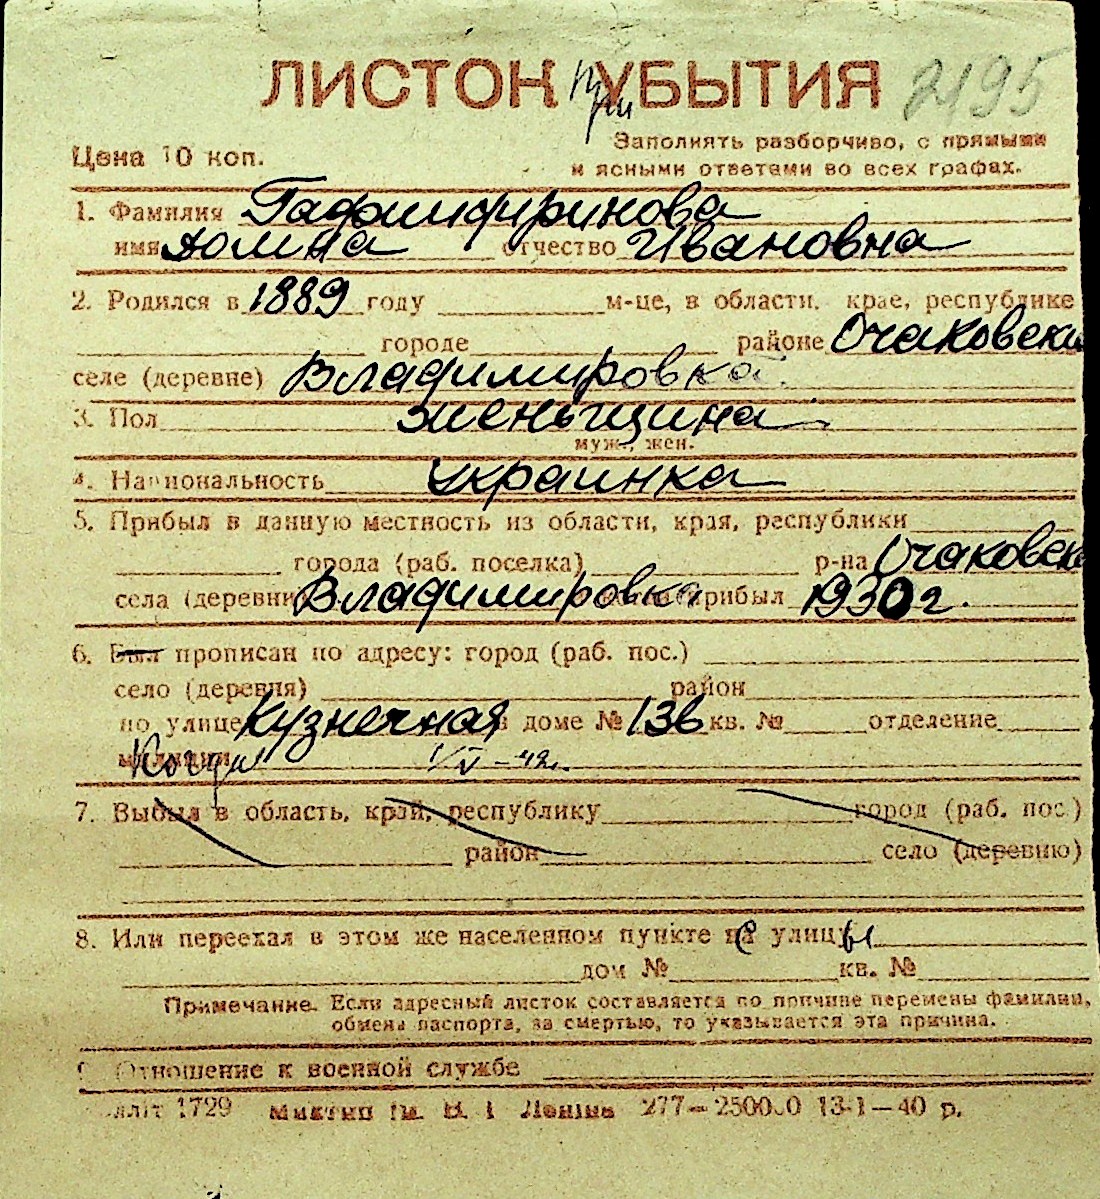 ЛИСТОК при УБЫТИЯ 2195
Цена 10 коп.
Заполнять разборчиво, с прямыми
и ясными ответами во всех графах.
1. Фамилия
имя Домна отчество Ивановна
2. Родился в 1889 году м-це, в области, крае, республике
городе районе Очаковски
селе (деревне) Владимировка
3. Пол женьщина
муж., жен.
4. Национальность украинка
5. Прибыл в данную местность из области, края, республики
города (раб. поселка) р-на Очаковск
села (деревни) Владимировка прибыл 1930 г.
6. Был прописан по адресу: город (раб. пос.)
село (деревня) район
по улице Кузнечная в доме № 136 кв. № отделение
милиции Когда 1/IV-42г.
7. Выбыл в область, край, республику город (раб. пос.)
район село (деревню)
8. Или переехал в этом же населенном пункте с улицы
дом № кв. №
Примечание. Если адресный листок составляется по причине перемены фамилии,
обмена паспорта, за смертью, то указывается эта причина.
9. Отношение к военной службе
1729 Миктип ім. В. І Леніна 277—250000 13-1—40 р.